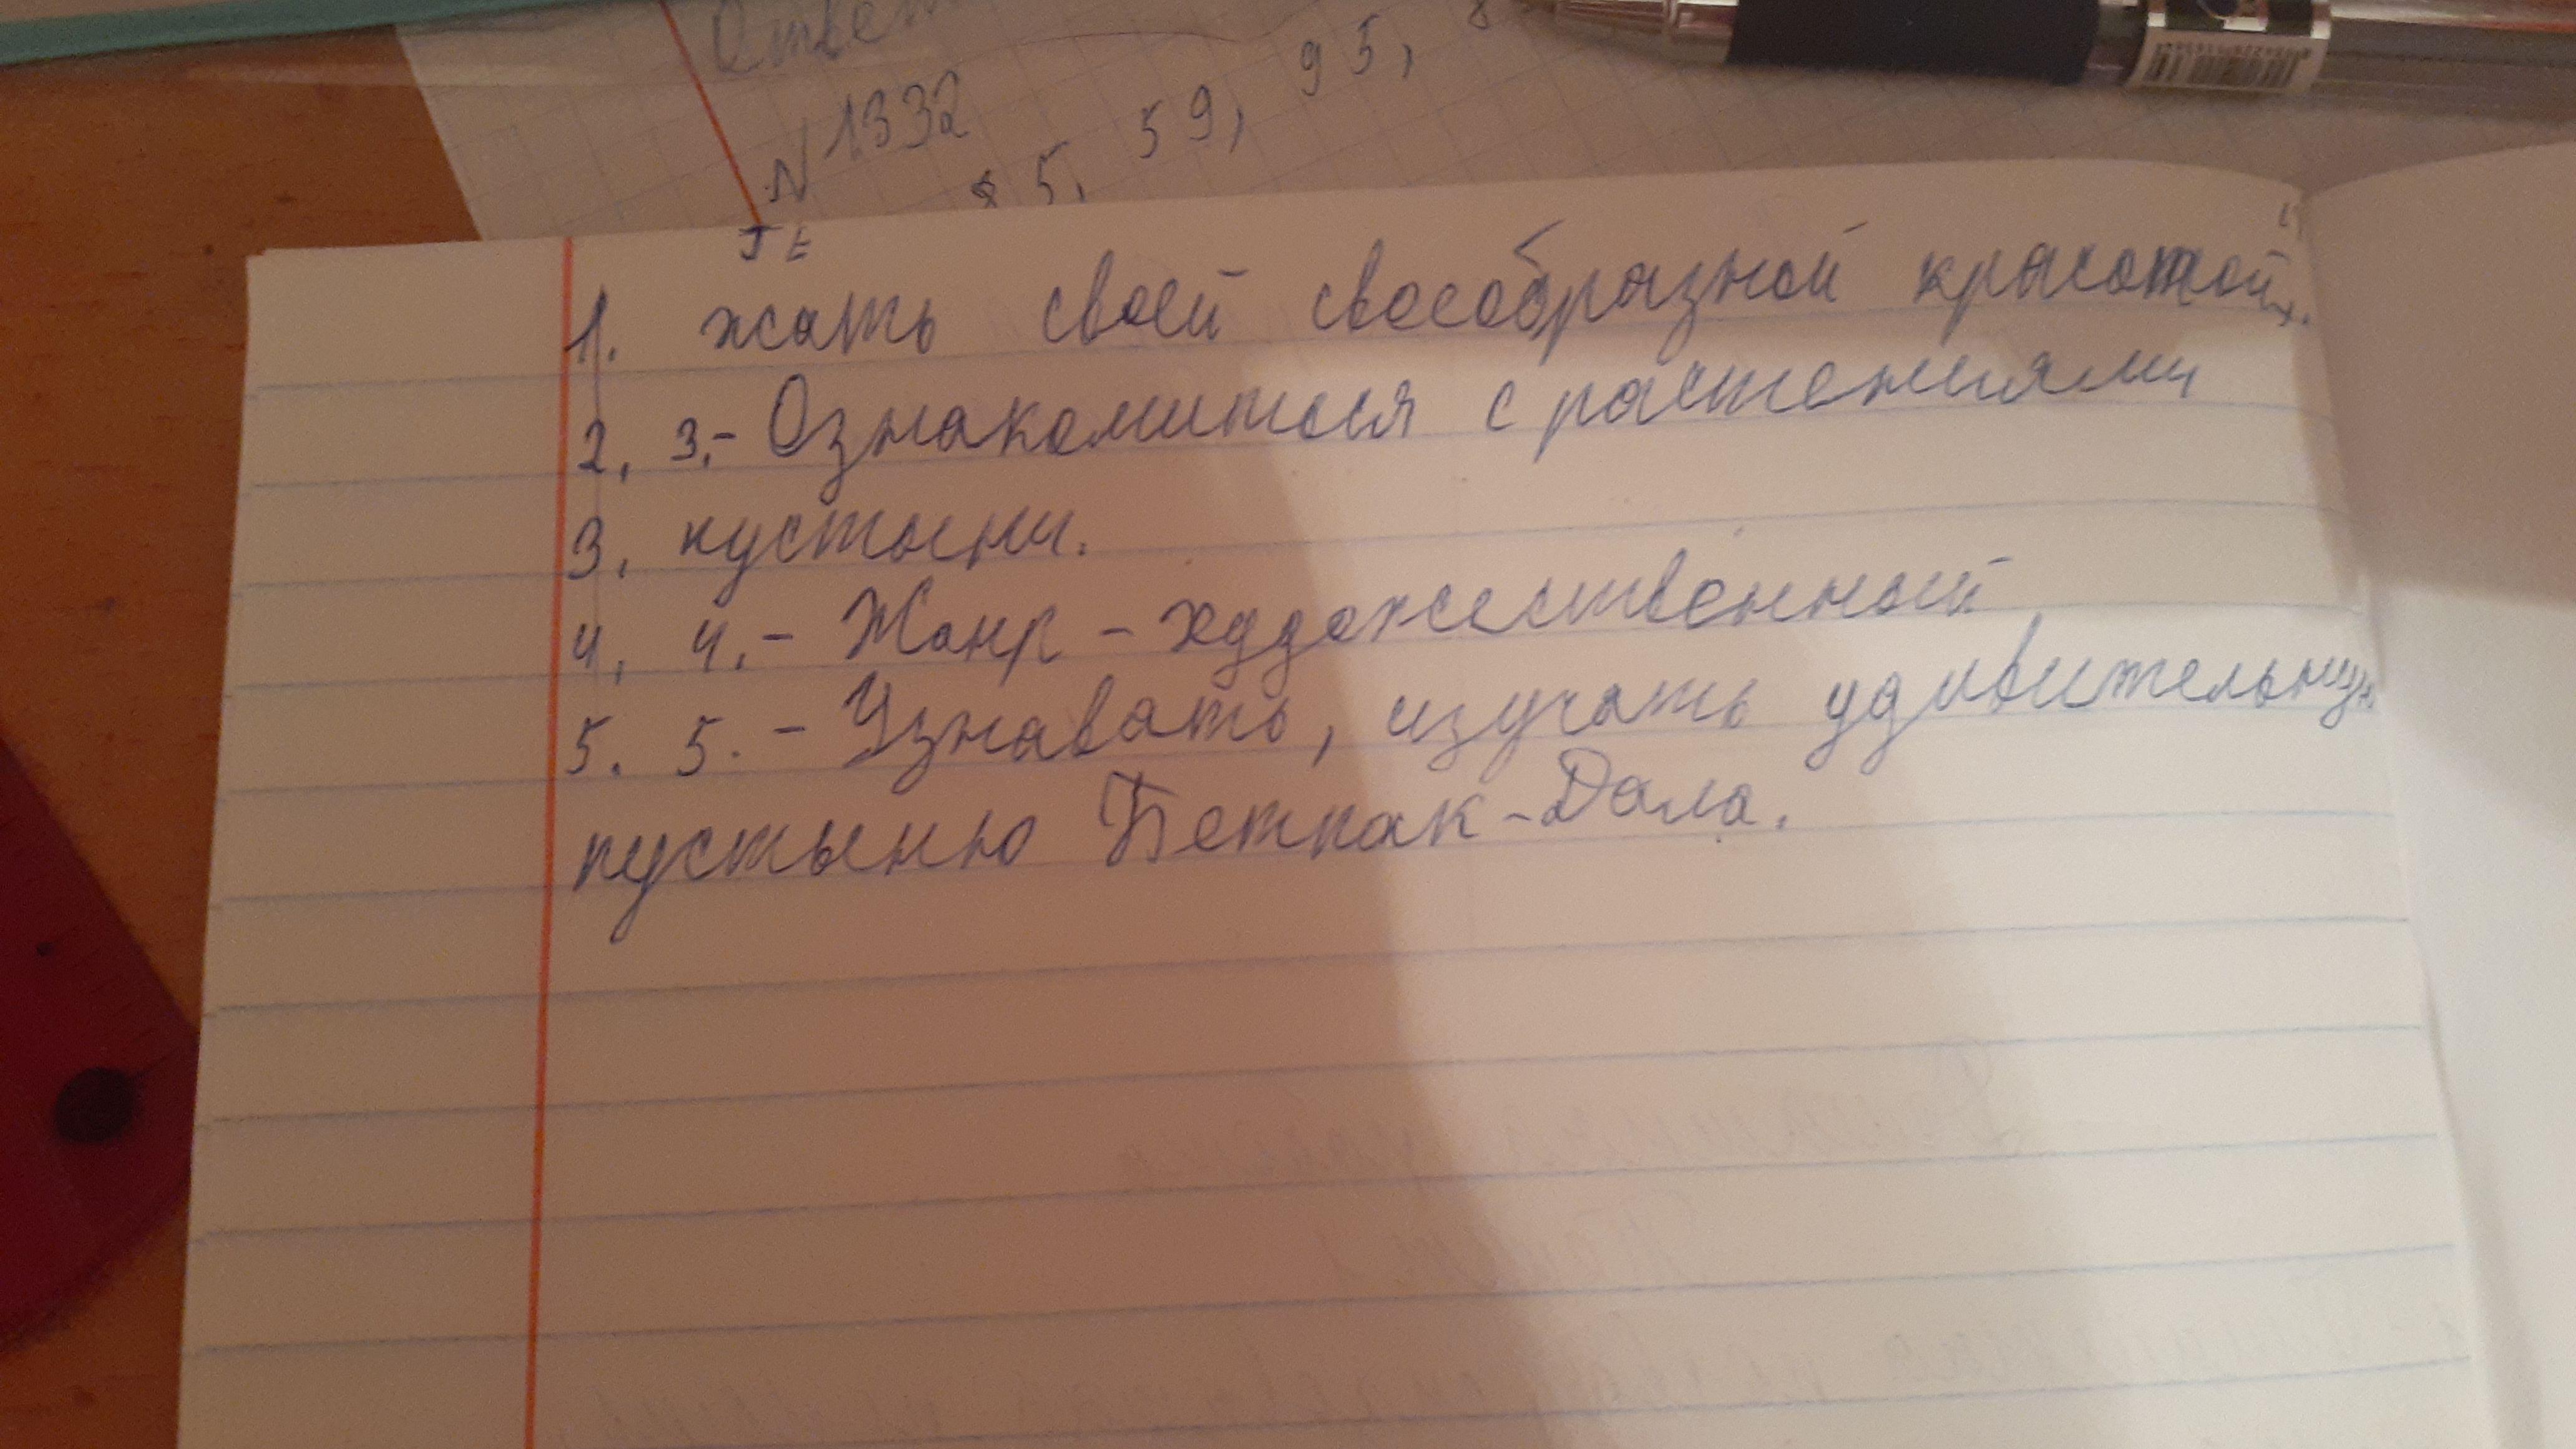 Ответ
N 1332
5, 59, 95, 8
1. жать своей своеобразной красотой.
2, 3.- Ознакомиться с растениями
3, пустыни.
4, 4.- Жанр - художественный
5. 5. - Узнавать, изучать удивительную
пустыню Бетпак-Дала.